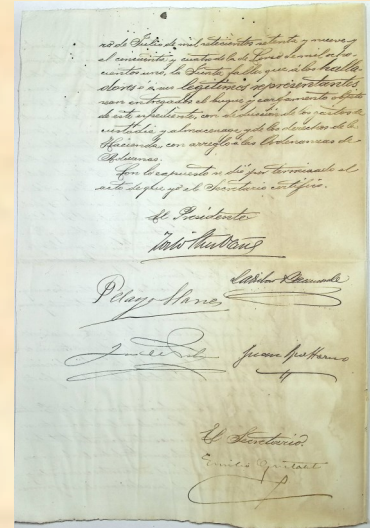 ro de Julio de mil setecientos setenta y nueve, y
el cincuenta y cuatro de la de
cientos uno, la Junta falla: que á los halla
dores ó á sus legítimos representantes
sean entregados el buque y cargamento objeto
de este expediente, con deducción de los gastos de
custodia y almacenaje y de los derechos de la
Hacienda con arreglo á las Ordenanzas de
Aduanas.
Con lo expuesto se dió por terminado el
acto de que yo el Secretario certifico.
El Presidente
Pelayo Llanes
Juan
El Secretario.
Emilio